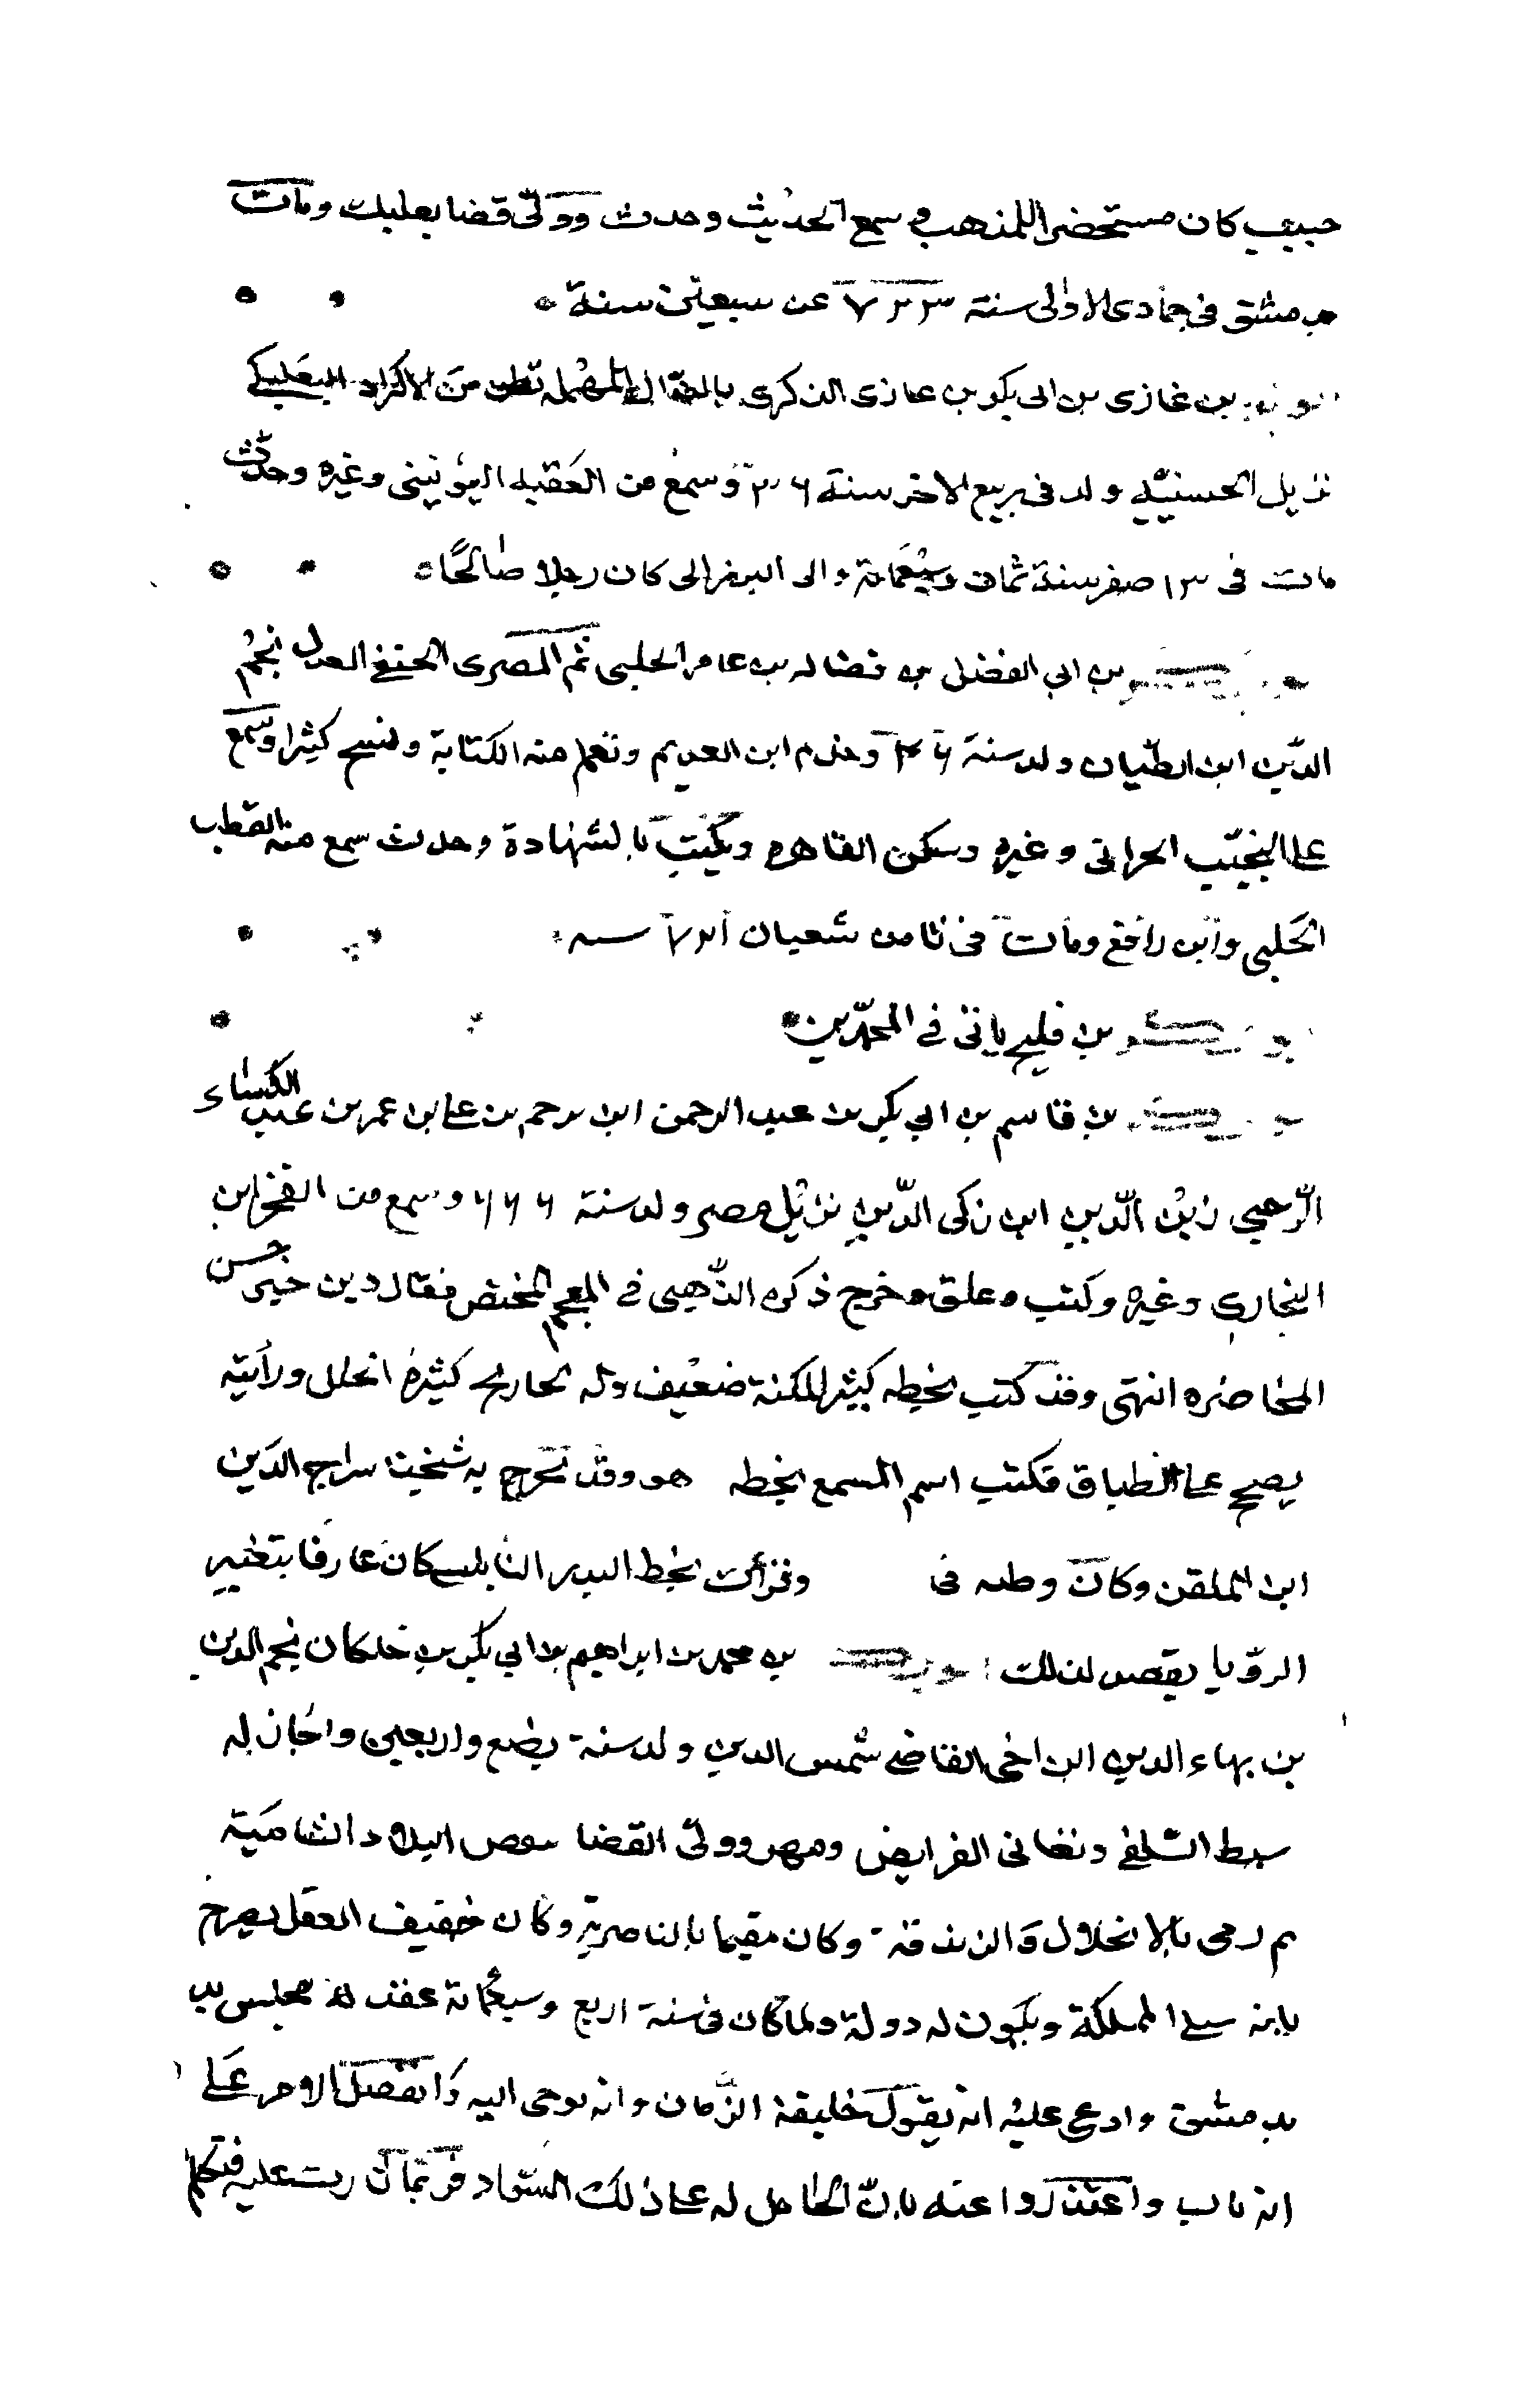 حبيب كان مستحضرا للمذهب و سمع الحديث وحدث وولى قضا بعلبك ومات
بدمشق فى جمادى الاولى سنة ٧٢٣ عن سبعين سنة
بن غازى بن ابى بكر بن غازى الدكرى بالدال المهملة بطن من الاكراد البعلبكى
نزيل الحسينية ولد فى ربيع الاخر سنة وسمع من الفقيه اليونينى وغيره وحدث
مات فى ١٣ صفر سنة ثمان وسبعمائة والى البرزالى كان رجلا صالحا
بن ابى الفضل بن فضالة بن عامر الحلبى ثم المصرى الحنفى العدل نجم
الدين ابن الطيان ولد سنة وخدم ابن العديم وتعلم منه الكتابة ونسخ كثيرا وسمع
على النجيب الحرانى وغيره وسكن القاهرة وتكسب بالشهادة وحدث سمع منه القطب
الحلبى وابن رافع ومات فى ثامن شعبان سنة
بن فليح ياتى فى المحمدين
بن قاسم بن ابى بكر بن عبد الرحمن ابن بن على بن عمر بن
الرحبى زين الدين ابن زكى الدين نزيل مصر ولد سنة ٦٦٦ وسمع من الفخر ابن
البخارى وغيره وكتب وعلق وخرج ذكره الذهبى فى المعجم المختص فقال دين خير حسن
المحاضره انتهى وقد كتب بخطه كثيرا لكنه ضعيف وله تخاريج كثيرة الخلل ورأيته
يصحح على الطباق فكتب اسم المسمع بخطه هو وقد تخرج به شيخنا سراج الدين
ابن الملقن وكان وطنه فى وقرأت بخط البدر النابلسى كان عارفا بتعبير
الرؤيا يقصد لذلك بن محمد بن ابراهيم بن ابى بكر بن خلكان نجم الدين
بن بهاء الدين ابن اخى القاضى شمس الدين ولد سنة بضع واربعين واجاز له
سبط السلفى وتعانى الفرايض ومهر وولى القضا ببعض البلاد الشامية
ثم رمى بالانحلال والزندقة وكان مقيما بالناصرية وكان خفيف العقل يصرح
بانه سيلى المملكة ويكون له دولة ولما كان فى سنة اربع وسبعمائة عقد له مجلس
بدمشق وادعى عليه انه يقول خليفة الزمان وانه يوحى اليه وانفصل الامر على
انه تاب واعتذروا عنه بان الحامل له على ذلك السواد فربما ثارت عليه فتكلم